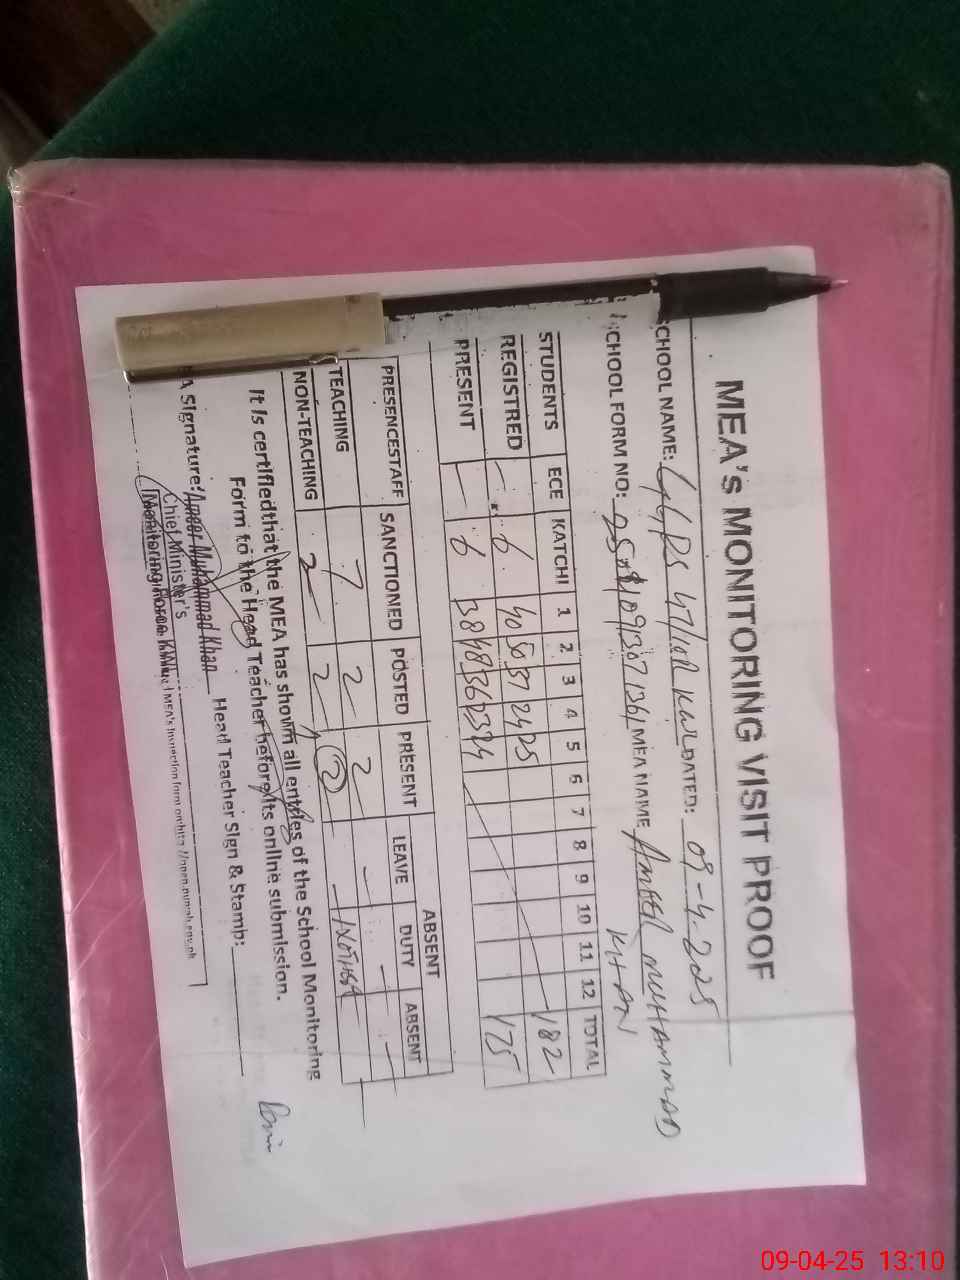 MEA'S MONITORING VISIT PROOF
CHOOL NAME: DATED: 09-4-2025
CHOOL FORM NO: MEA NAME AMEER MUHAMMAD
KHAN
STUDENTS ECE KATCHI 1 2 3 4 5 6 7 8 9 10 11 12 TOTAL
REGISTRED - 6 40 50 37 24 25 182
PRESENT - 6 38 48 36 23 24 175
ABSENT
PRESENCESTAFF SANCTIONED POSTED PRESENT LEAVE DUTY ABSENT
TEACHING 7 2 2 - - -
NON-TEACHING 2 2 2 -
It is certifiedthat the MEA has shown all entries of the School Monitoring
Form to the Head Teacher before its online submission.
A Signature: Ameer Muhammad Khan Head Teacher Sign & Stamp:
Chief Minister's
Monitoring Force KWL
09-04-25 13:10